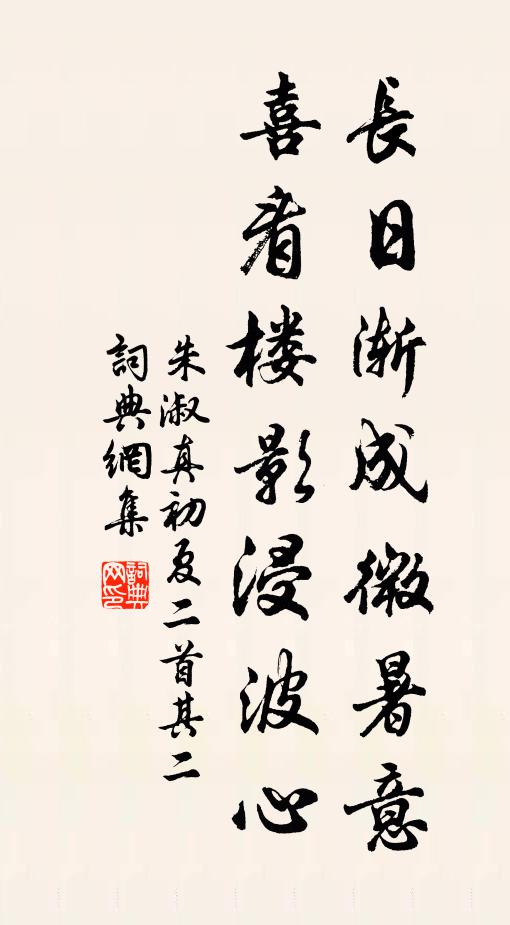 長日渐成微暑意
喜看楼影浸波心
朱淑真初夏二首其二
詞典網集
詞典网印